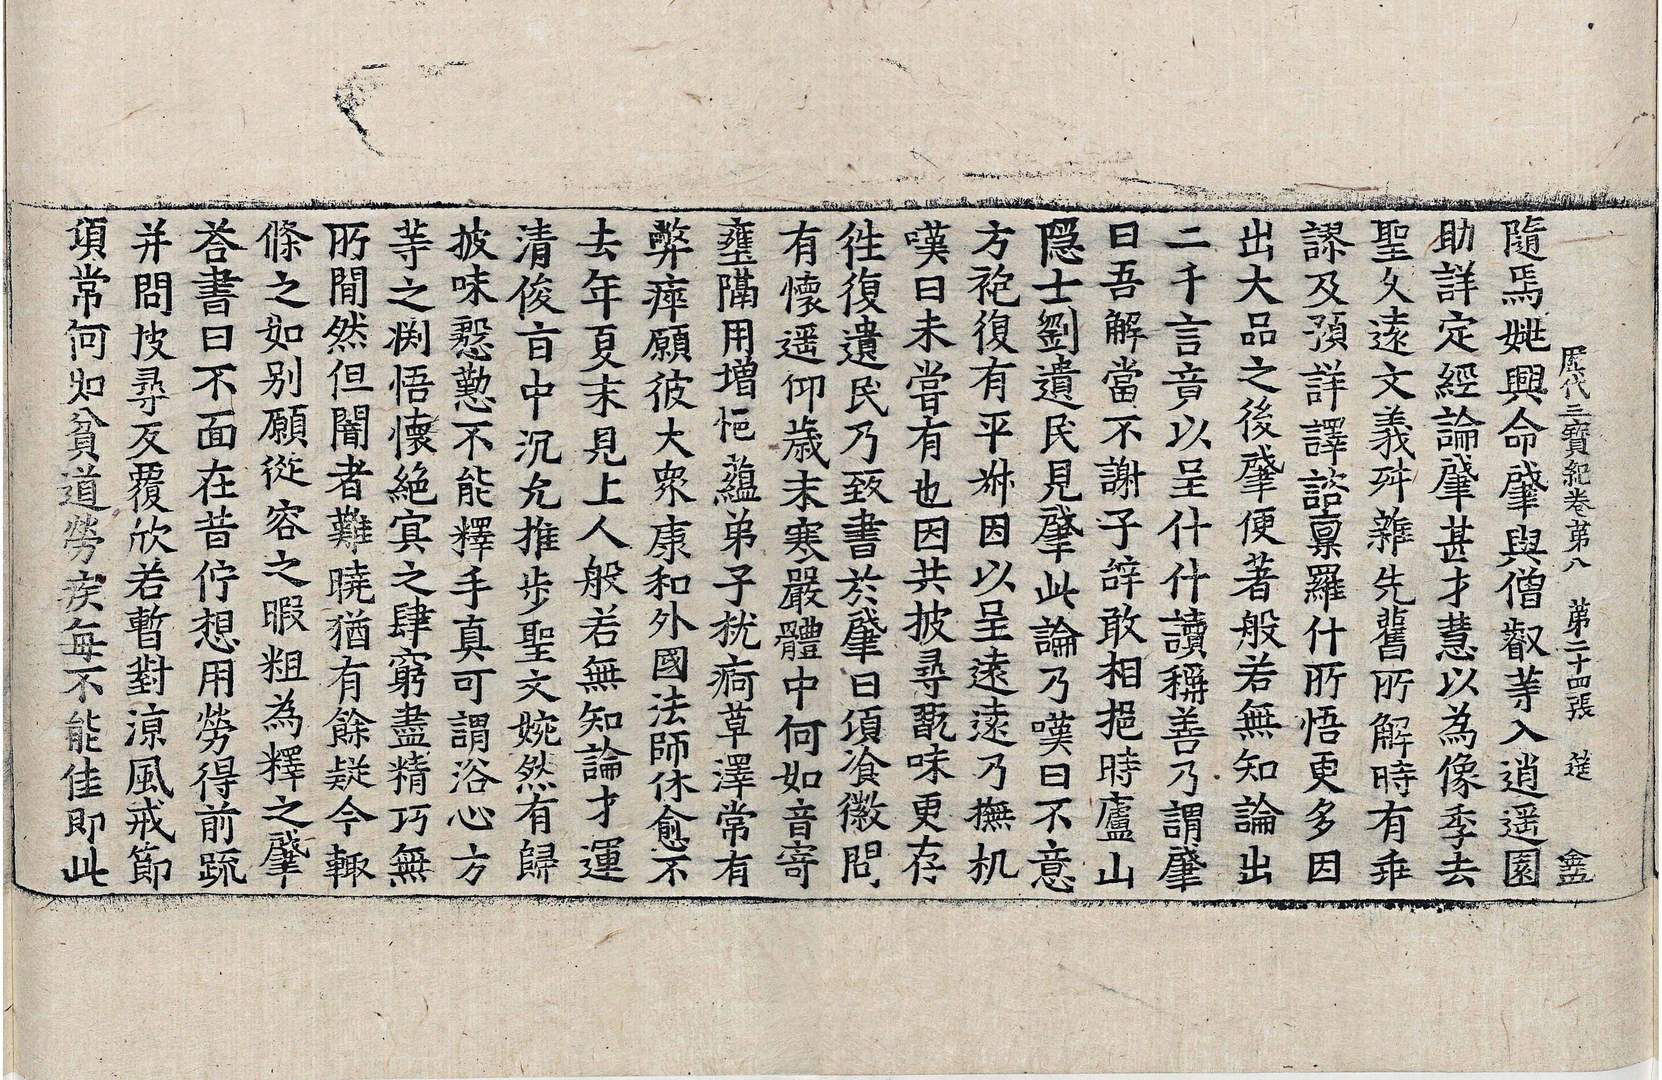 歷代三寶紀卷苐八 苐二十四張 莚
隨焉姚興命肇與僧叡等入逍遥園
助詳定經論肇甚才慧以為像季去
聖攵遠文義舛雜先舊所解時有乖
謬及預詳譯諮稟羅什所悟更多因
出大品之後肇便著般若無知論出
二千言竟以呈什什讀稱善乃謂肇
曰吾解當不謝子辝敢相挹時廬山
隠士劉遺民見肇此論乃嘆曰不意
方袍復有平叔因以呈遠遠乃撫机
嘆曰未甞有也因共披尋翫味更存
徃復遺民乃致書於肇曰頃飡徽問
有懷遥仰歳末寒嚴體中何如音寄
壅隔用增悒蘊弟子沈痾草澤常有
弊瘁願彼大衆康和外國法師休愈不
去年夏末見上人般若無知論才運
清俊㫖中沉允推步聖文婉然有歸
披味慇懃不能釋手真可謂浴心方
等之渕悟懷絶㝠之肆窮盡精巧無
所間然但闇者難曉猶有餘疑今輙
條之如别願從容之暇粗為釋之肇
荅書曰不面在昔佇想用勞得前疏
并問披尋反覆欣若暫對涼風戒節
頃常何如貧道勞疾每不能佳即此